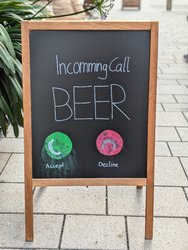 Incomming Call
BEER
Accept
Decline